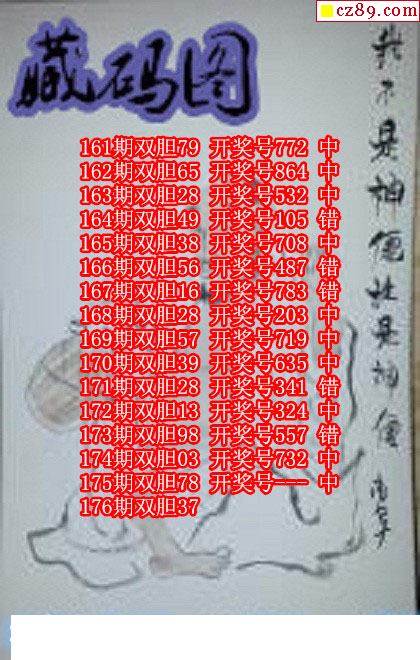 cz89.com
藏码图
161期双胆79 开奖号772 中
162期双胆65 开奖号864 中
163期双胆28 开奖号532 中
164期双胆49 开奖号105 错
165期双胆38 开奖号708 中
166期双胆56 开奖号487 错
167期双胆16 开奖号783 错
168期双胆28 开奖号203 中
169期双胆57 开奖号719 中
170期双胆39 开奖号635 中
171期双胆28 开奖号341 错
172期双胆13 开奖号324 中
173期双胆98 开奖号557 错
174期双胆03 开奖号732 中
175期双胆78 开奖号--- 中
176期双胆37
我不是神仙 是神仙